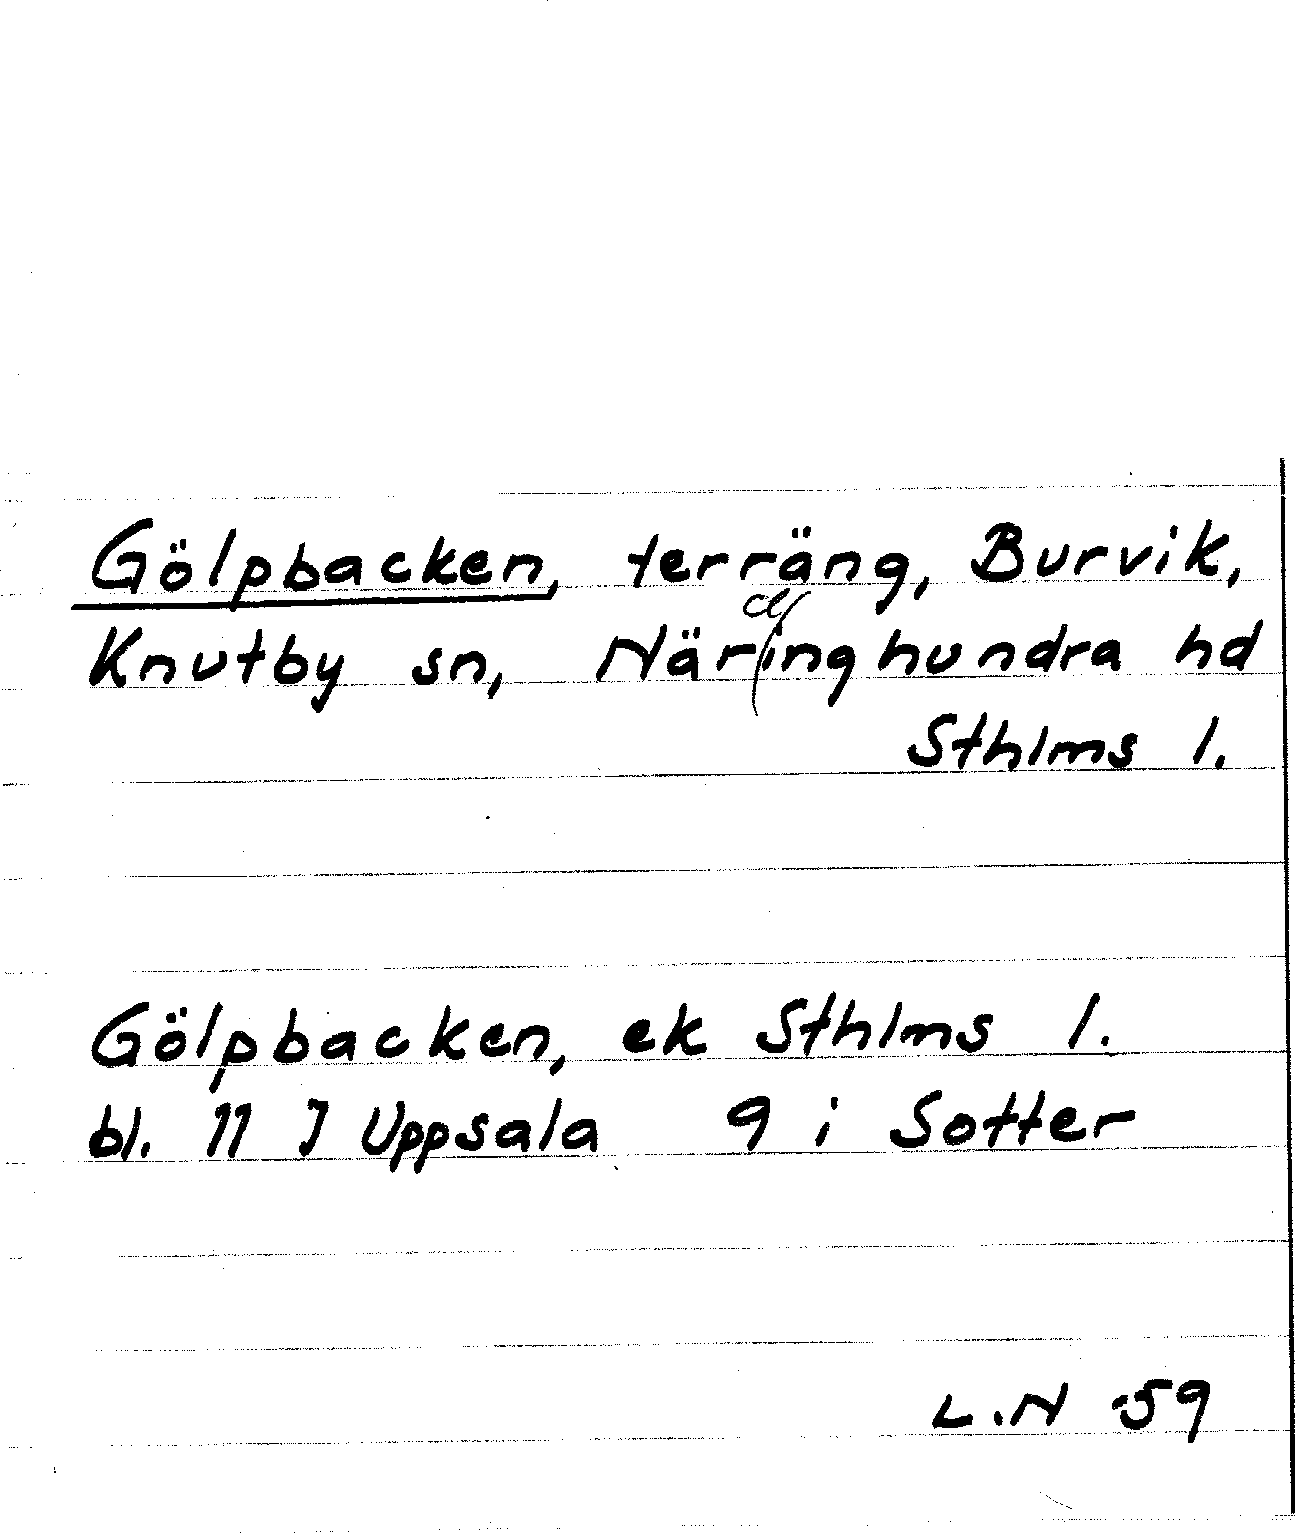 Gölpbacken, terräng, Burvik,
Knutby sn, Närdinghundra hd
Sthlms l.
Gölpbacken, ek Sthlms l.
bl. 11 J Uppsala 9 i Sotter
L.N -59